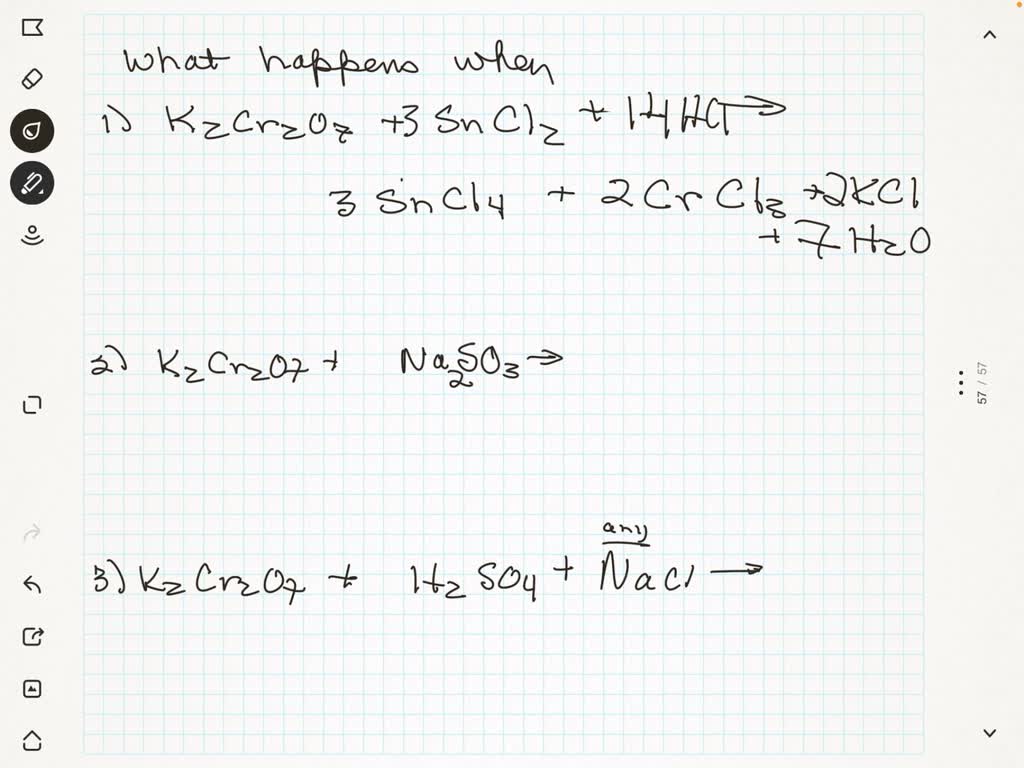 What happens when
1) K₂Cr₂O₇ +3 SnCl₂ + 14 HCl →
3 SnCl₄ + 2 CrCl₃ + 2KCl
+ 7 H₂O
2) K₂Cr₂O₇ + Na₂SO₃ →
57 / 57
any
3) K₂Cr₂O₇ + H₂SO₄ + NaCl →